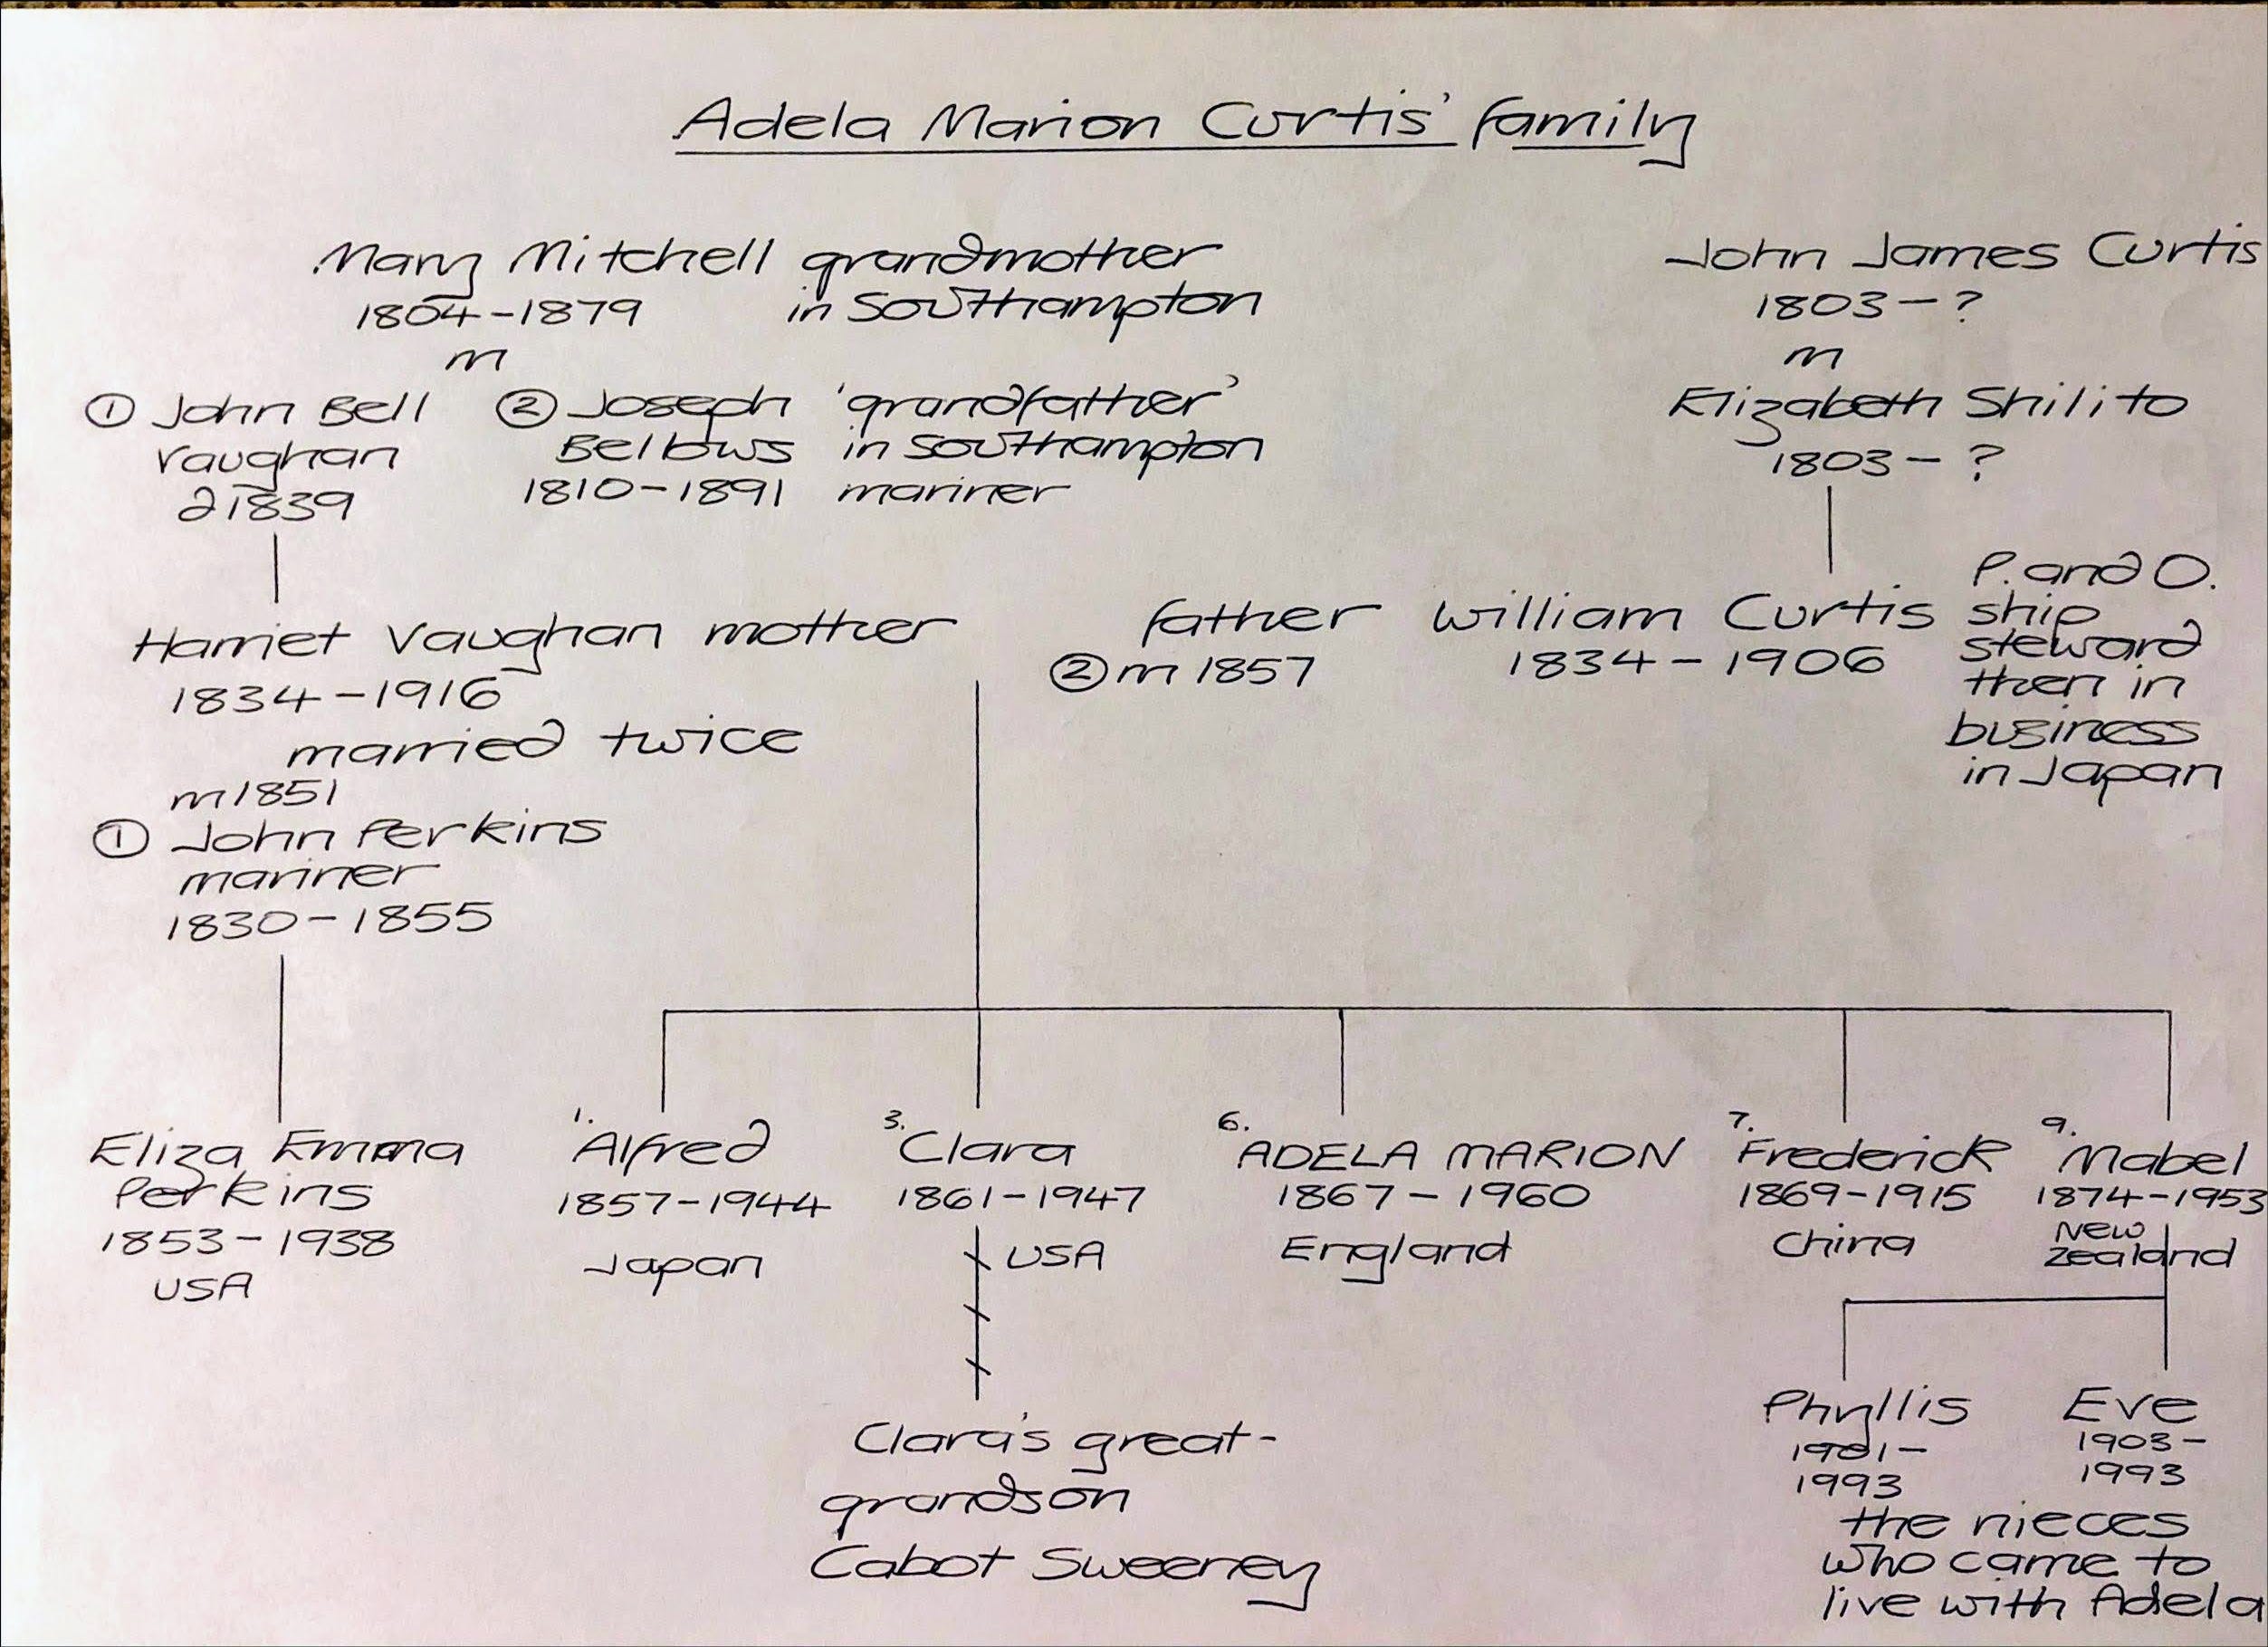 Adela Marion Curtis' family
Mary Mitchell grandmother
1804-1879 in Southampton
m
① John Bell
Vaughan
d 1839
② Joseph 'grandfather'
Bellows in Southampton
1810-1891 mariner
John James Curtis
1803-?
m
Elizabeth Shilito
1803-?
Harriet Vaughan mother
1834-1916
married twice
m 1851
① John Perkins
mariner
1830-1855
father William Curtis
② m 1857 1834-1906
P. and O.
ship
steward
then in
business
in Japan
Eliza Emma
Perkins
1853-1938
USA
1. Alfred
1857-1944
Japan
3. Clara
1861-1947
USA
Clara's great-
grandson
Cabot Sweeney
6. ADELA MARION
1867-1960
England
7. Frederick
1869-1915
China
9. Mabel
1874-1953
New
Zealand
Phyllis
1901-
1993
Eve
1903-
1993
the nieces
who came to
live with Adela